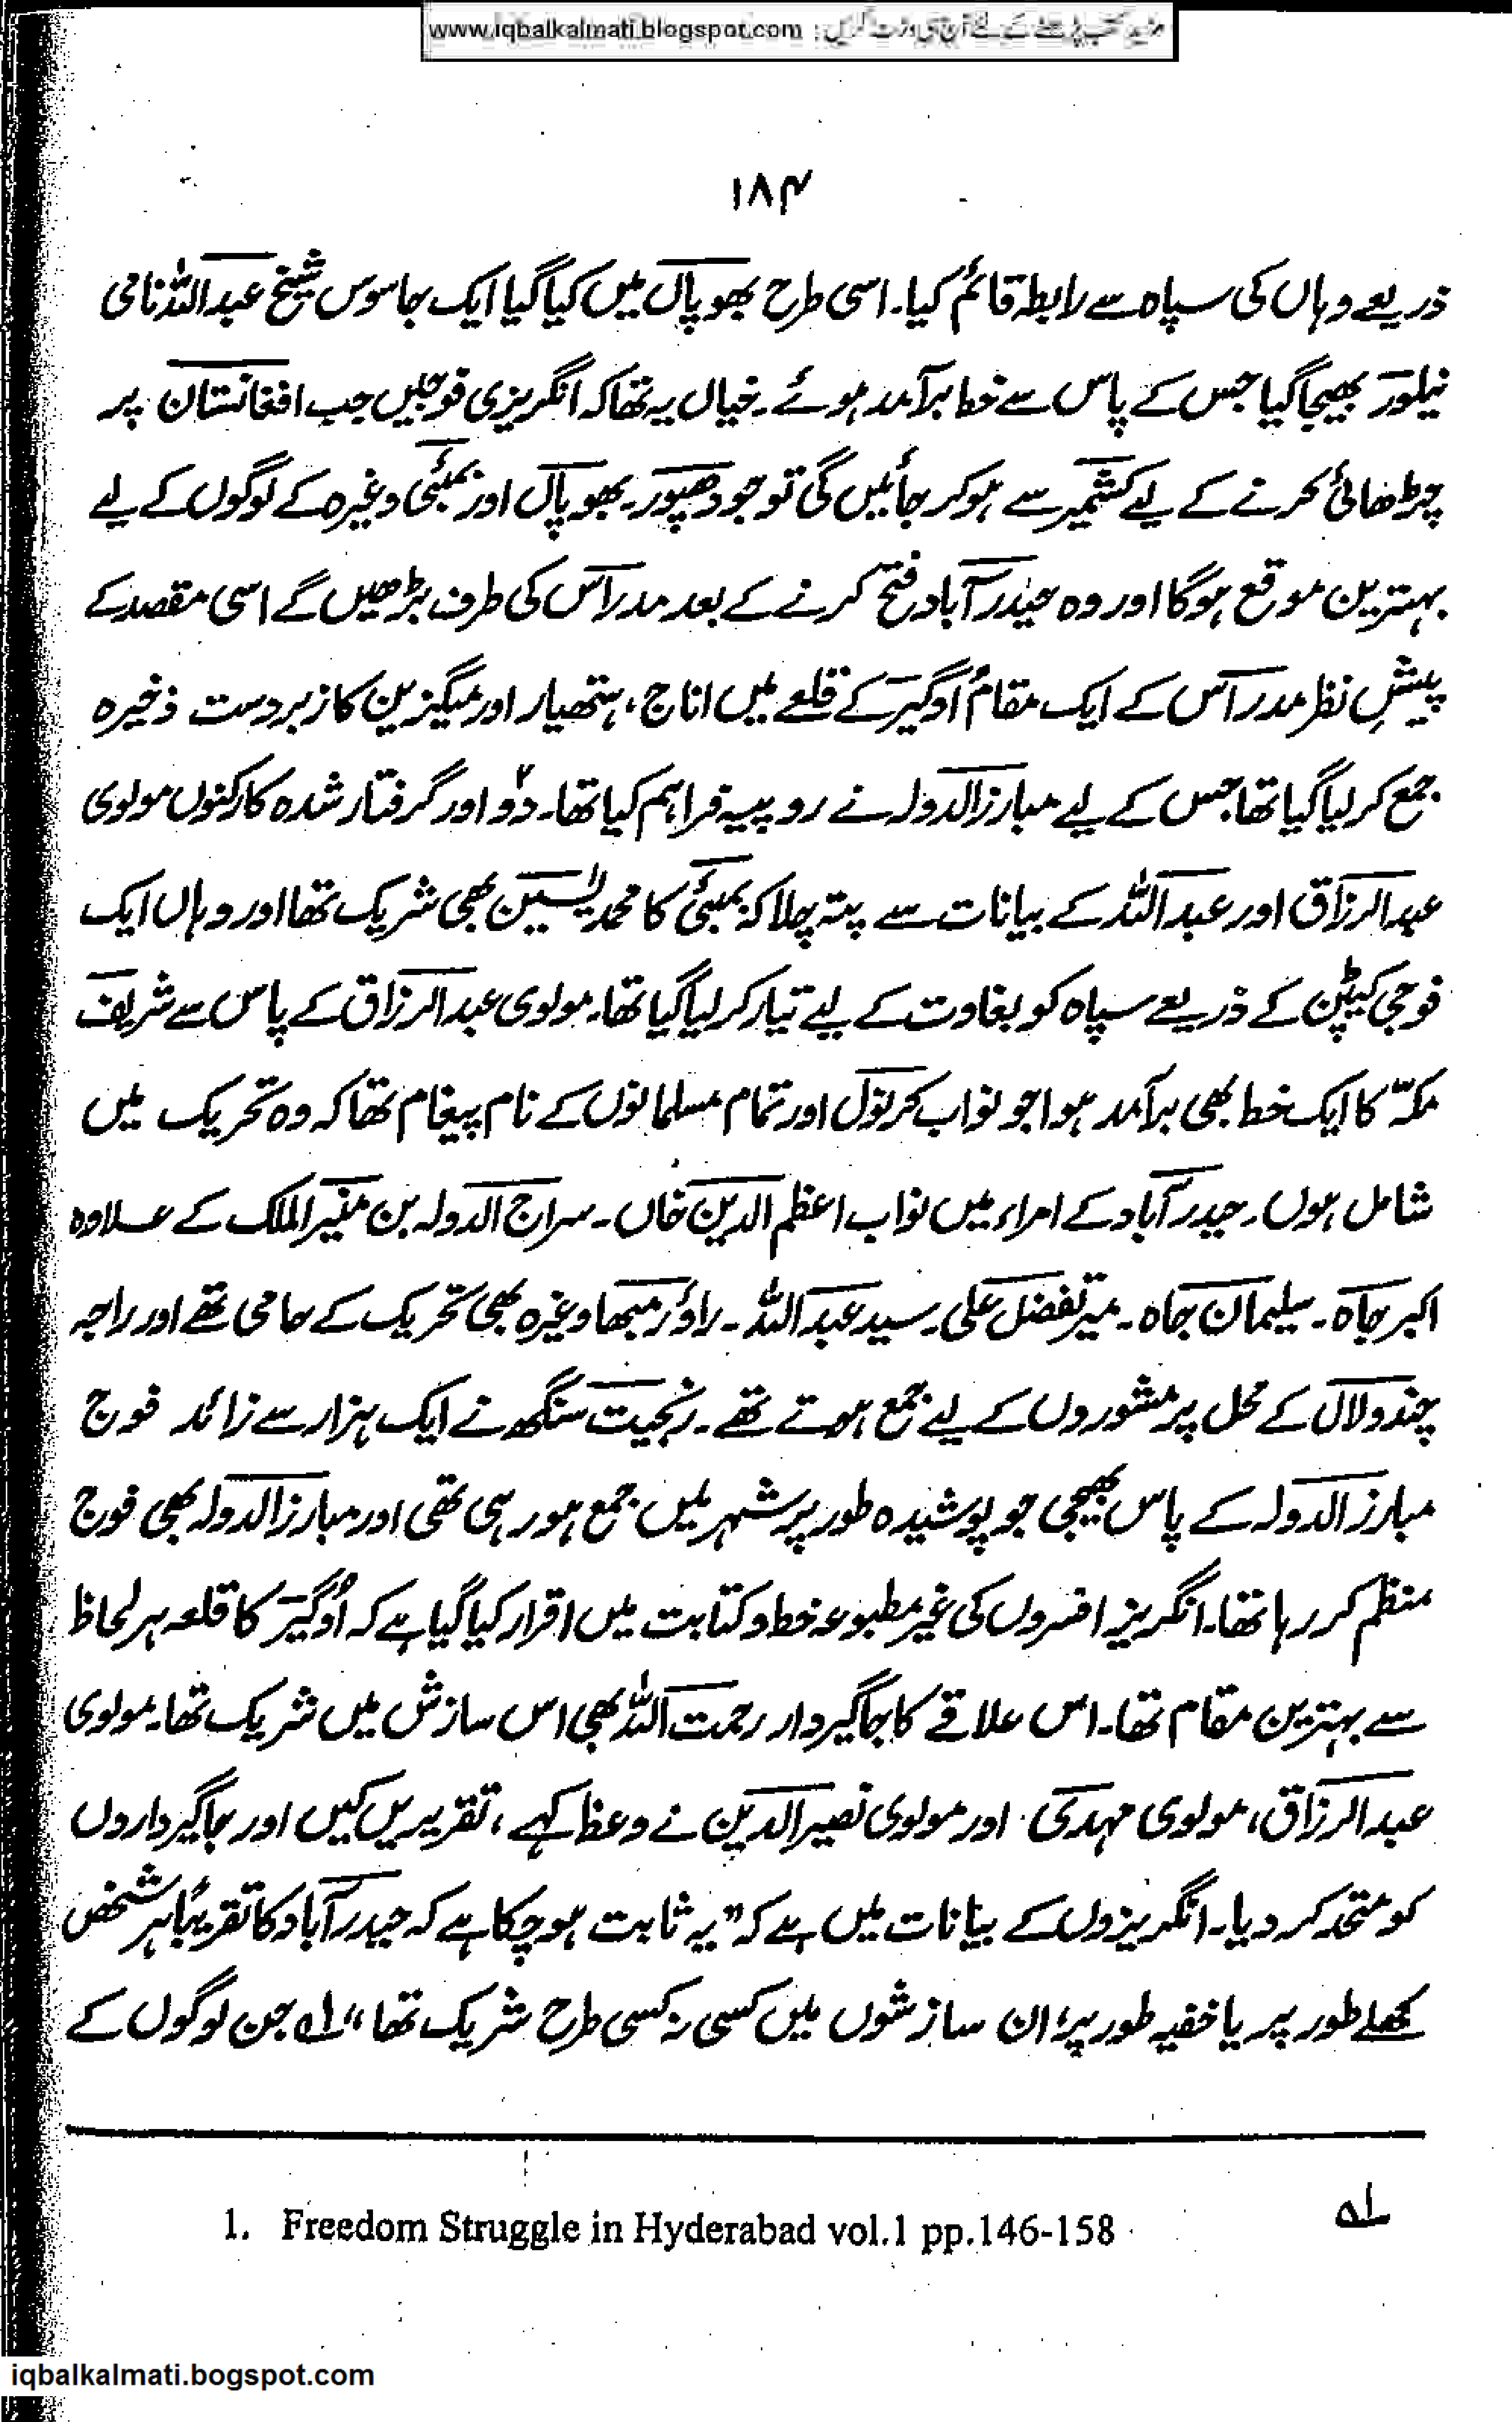 مزید کتب پڑھنے کے لئے آج ہی وزٹ کریں : www.iqbalkalmati.blogspot.com
۱۸۴
ذریعے وہاں کی سپاہ سے رابطہ قائم کیا۔ اسی طرح بھوپال میں کیا گیا ایک جاسوس شیخ عبداللہ نامی
نیلور بھیجا گیا جس کے پاس سے خط برآمد ہوئے۔ خیال یہ تھا کہ انگریزی فوجیں جب افغانستان پر
چڑھائی کرنے کے لیے کشمیر سے ہوکر جائیں گی تو جودھپور۔ بھوپال اور بمبئی وغیرہ کے لوگوں کے لیے
بہترین موقع ہوگا اور وہ حیدرآباد فتح کرنے کے بعد مدراس کی طرف بڑھیں گے اسی مقصد کے
پیشِ نظر مدراس کے ایک مقام اُوگیر کے قلعے میں اناج، ہتھیار اور میگزین کا زبردست ذخیرہ
جمع کر لیا گیا تھا جس کے لیے مبارزالدولہ نے روپیہ فراہم کیا تھا۔ دو۲ اور گرفتار شدہ کارکنوں مولوی
عبدالرزاق اور عبداللہ کے بیانات سے پتہ چلا کہ بمبئی کا محمد یٰسین بھی شریک تھا اور وہاں ایک
فوجی کیپٹن کے ذریعے سپاہ کو بغاوت کے لیے تیار کر لیا گیا تھا۔ مولوی عبدالرزاق کے پاس سے شریف
مکہّ کا ایک خط بھی برآمد ہوا جو نواب کرنول اور تمام مسلمانوں کے نام پیغام تھا کہ وہ تحریک میں
شامل ہوں۔ حیدرآباد کے امراء میں نواب اعظم الدین خاں۔ سراج الدولہ بن منیرالملک کے علاوہ
اکبر جاہ۔ سلیمان جاہ۔ میر تفضل علی۔ سید عبداللہ۔ راؤ رمبھا وغیرہ بھی تحریک کے حامی تھے اور راجہ
چندولال کے محل پر مشوروں کے لیے جمع ہوتے تھے۔ رنجیت سنگھ نے ایک ہزار سے زائد فوج
مبارزالدولہ کے پاس بھیجی جو پوشیدہ طور پر شہر میں جمع ہو رہی تھی اور مبارزالدولہ بھی فوج
منظم کر رہا تھا۔ انگریز افسروں کی غیر مطبوعہ خط و کتابت میں اقرار کیا گیا ہے کہ اُوگیر کا قلعہ ہر لحاظ
سے بہترین مقام تھا۔ اس علاقے کا جاگیردار رحمت اللہ بھی اس سازش میں شریک تھا۔ مولوی
عبدالرزاق، مولوی مہدی اور مولوی نصیرالدین نے وعظ کہے، تقریریں کیں اور جاگیرداروں
کو متحد کر دیا۔ انگریزوں کے بیانات میں ہے کہ ”یہ ثابت ہو چکا ہے کہ حیدرآباد کا تقریباً ہر شخص
کھلے طور پر یا خفیہ طور پر، ان سازشوں میں کسی نہ کسی طرح شریک تھا“ ؎۱ جن لوگوں کے
؎۱
1. Freedom Struggle in Hyderabad vol.1 pp.146-158
iqbalkalmati.bogspot.com